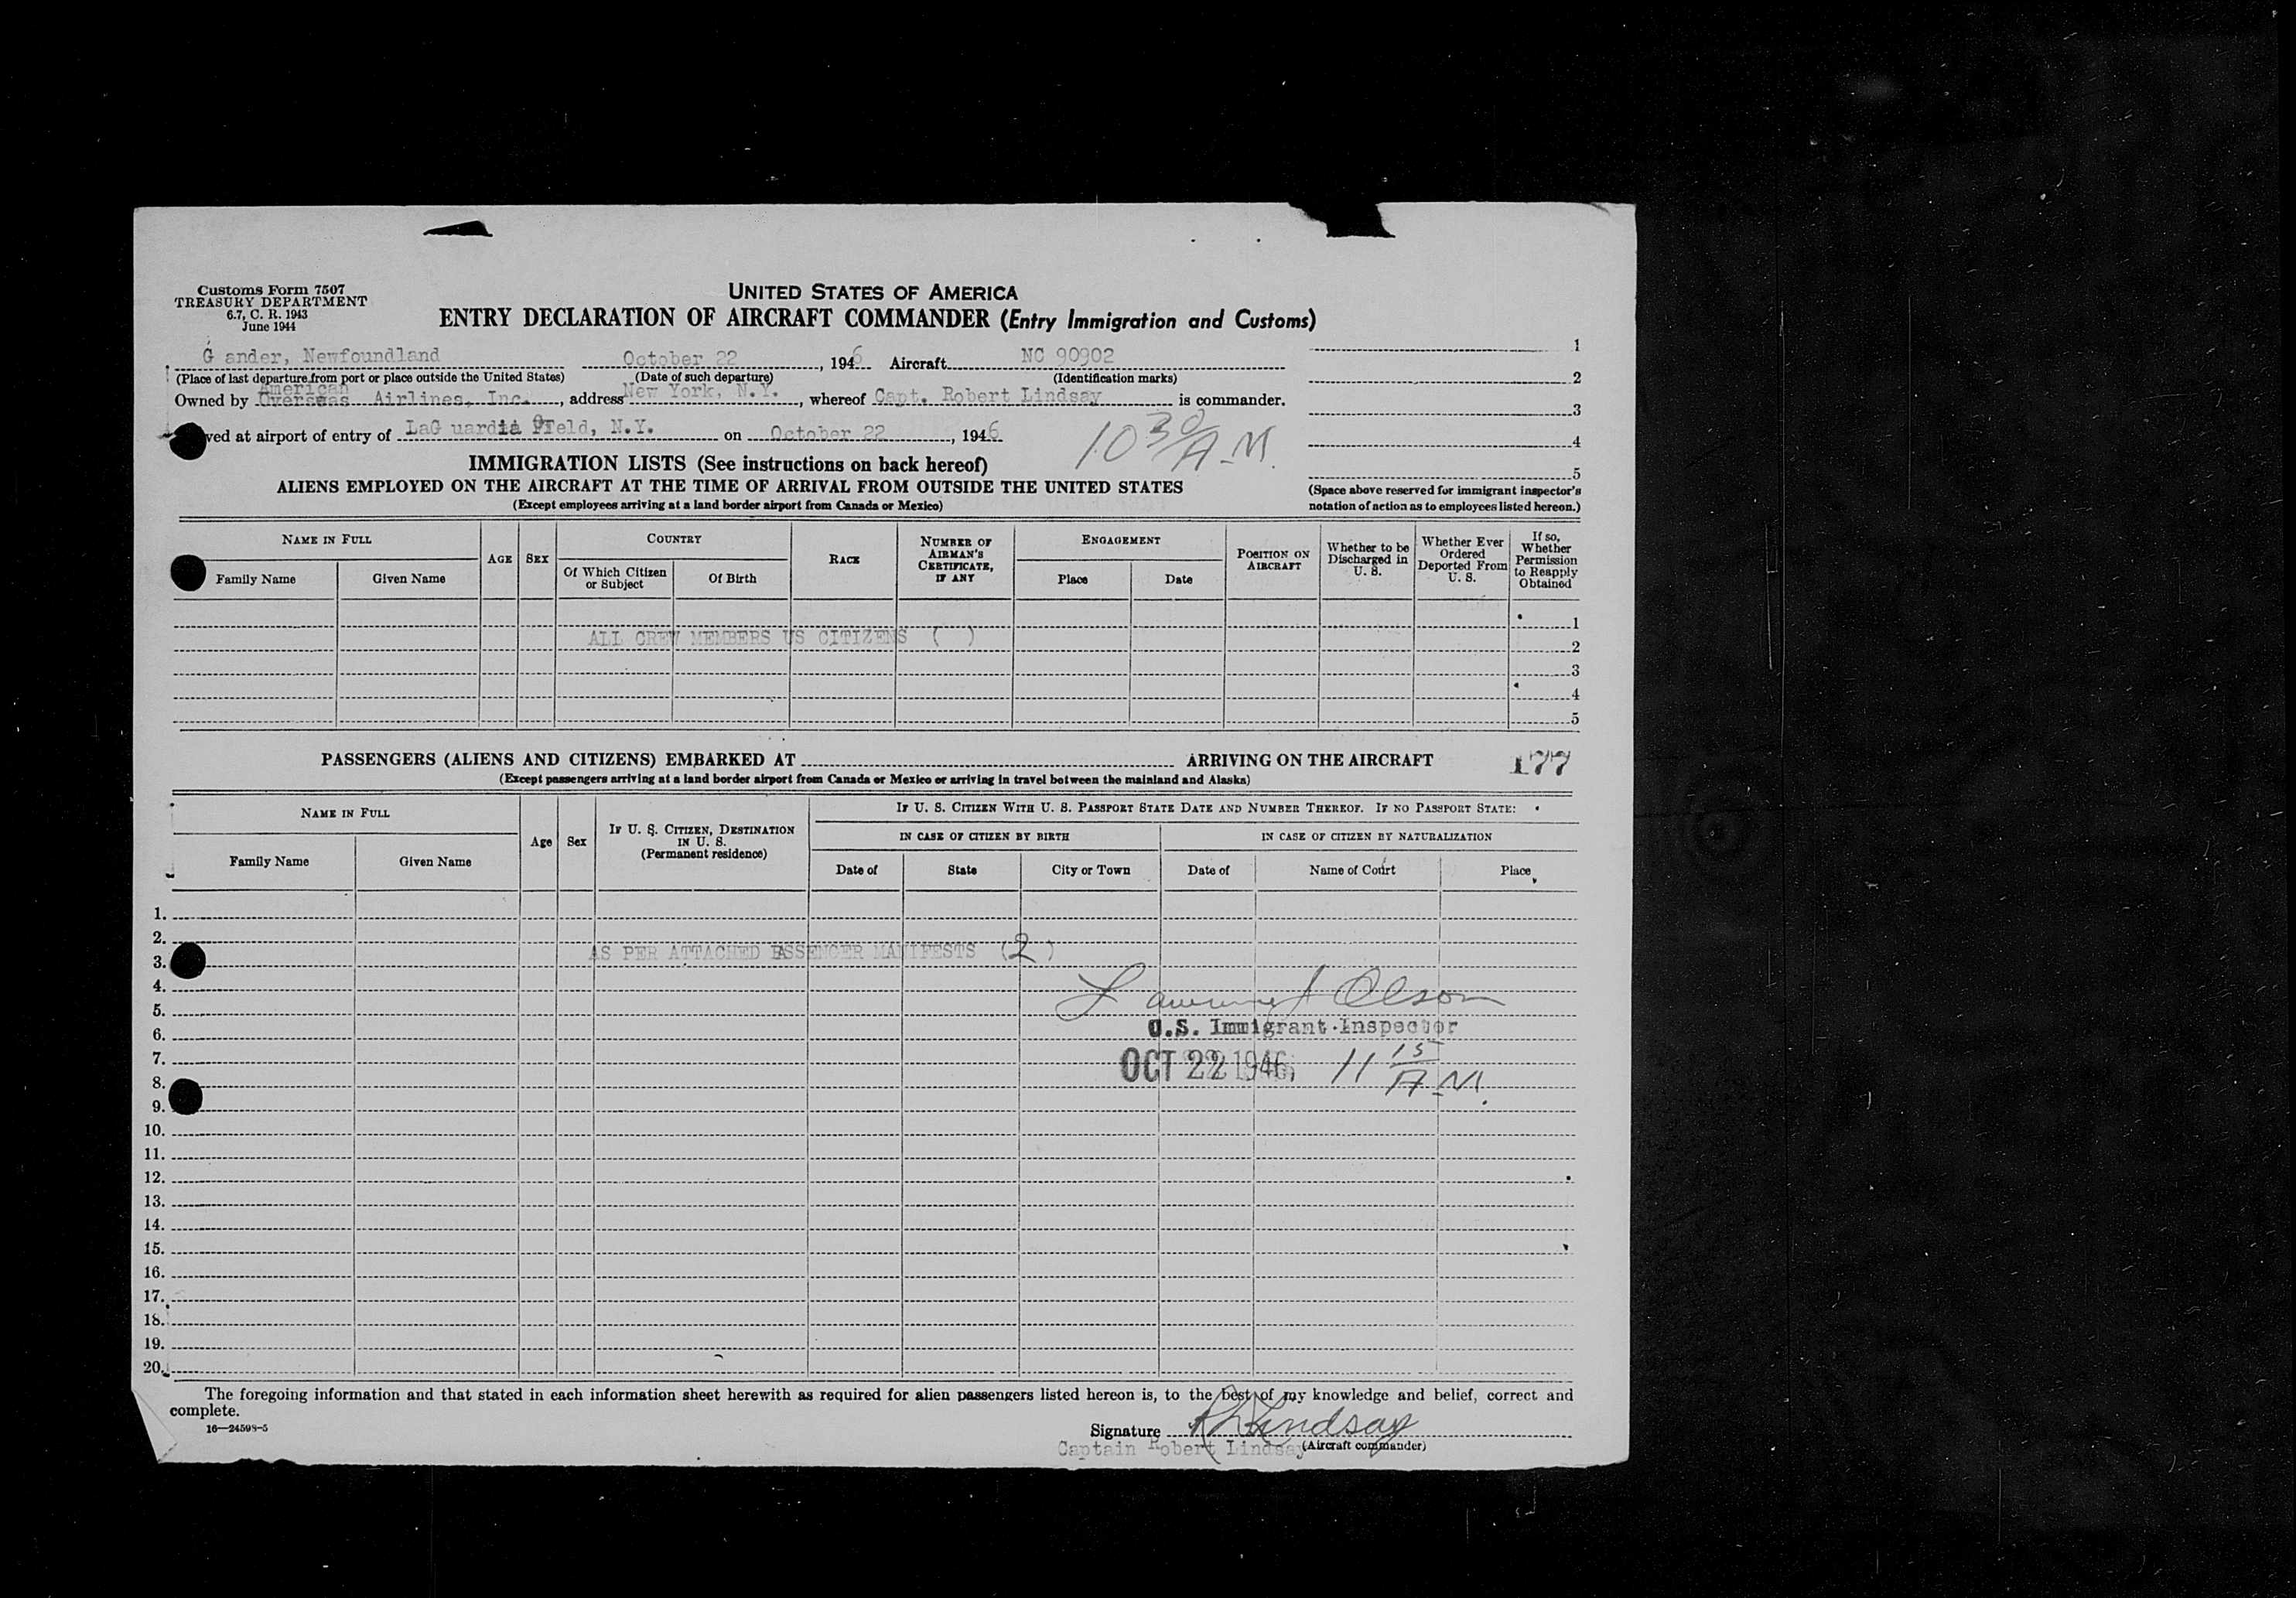 Customs Form 7507
TREASURY DEPARTMENT
6.7, C. R. 1943
June 1944
UNITED STATES OF AMERICA
ENTRY DECLARATION OF AIRCRAFT COMMANDER (Entry Immigration and Customs)
G ander, Newfoundland October 22, 1946 Aircraft NC 90902
(Place of last departure from port or place outside the United States) (Date of such departure) (Identification marks)
American
Owned by Overseas Airlines, Inc., address New York, N.Y., whereof Capt. Robert Lindsay is commander.
ved at airport of entry of LaG uardia Field, N.Y. on October 22, 1946
10 30 A.M.
1
2
3
4
5
(Space above reserved for immigrant inspector's
notation of action as to employees listed hereon.)
IMMIGRATION LISTS (See instructions on back hereof)
ALIENS EMPLOYED ON THE AIRCRAFT AT THE TIME OF ARRIVAL FROM OUTSIDE THE UNITED STATES
(Except employees arriving at a land border airport from Canada or Mexico)
NAME IN FULL
Family Name
Given Name
AGE
SEX
COUNTRY
Of Which Citizen
or Subject
Of Birth
RACE
NUMBER OF
AIRMAN'S
CERTIFICATE,
IF ANY
ENGAGEMENT
Place
Date
POSITION ON
AIRCRAFT
Whether to be
Discharged in
U. S.
Whether Ever
Ordered
Deported From
U. S.
If so,
Whether
Permission
to Reapply
Obtained
1
ALL CREW MEMBERS US CITIZENS ( )
2
3
4
5
PASSENGERS (ALIENS AND CITIZENS) EMBARKED AT ARRIVING ON THE AIRCRAFT 177
(Except passengers arriving at a land border airport from Canada or Mexico or arriving in travel between the mainland and Alaska)
NAME IN FULL
Family Name
Given Name
Age
Sex
IF U. S. CITIZEN, DESTINATION
IN U. S.
(Permanent residence)
IF U. S. CITIZEN WITH U. S. PASSPORT STATE DATE AND NUMBER THEREOF. IF NO PASSPORT STATE:
IN CASE OF CITIZEN BY BIRTH
IN CASE OF CITIZEN BY NATURALIZATION
Date of
State
City or Town
Date of
Name of Court
Place
1.
2.
AS PER ATTACHED PASSENGER MANIFESTS (2)
3.
4.
Lawrence J Olson
5.
U.S. Immigrant Inspector
6.
7.
OCT 22 1946, 11 15 A.M.
8.
9.
10.
11.
12.
13.
14.
15.
16.
17.
18.
19.
20.
The foregoing information and that stated in each information sheet herewith as required for alien passengers listed hereon is, to the best of my knowledge and belief, correct and
complete.
16—24598-5
Signature R Lindsay
Captain Robert Lindsay (Aircraft commander)